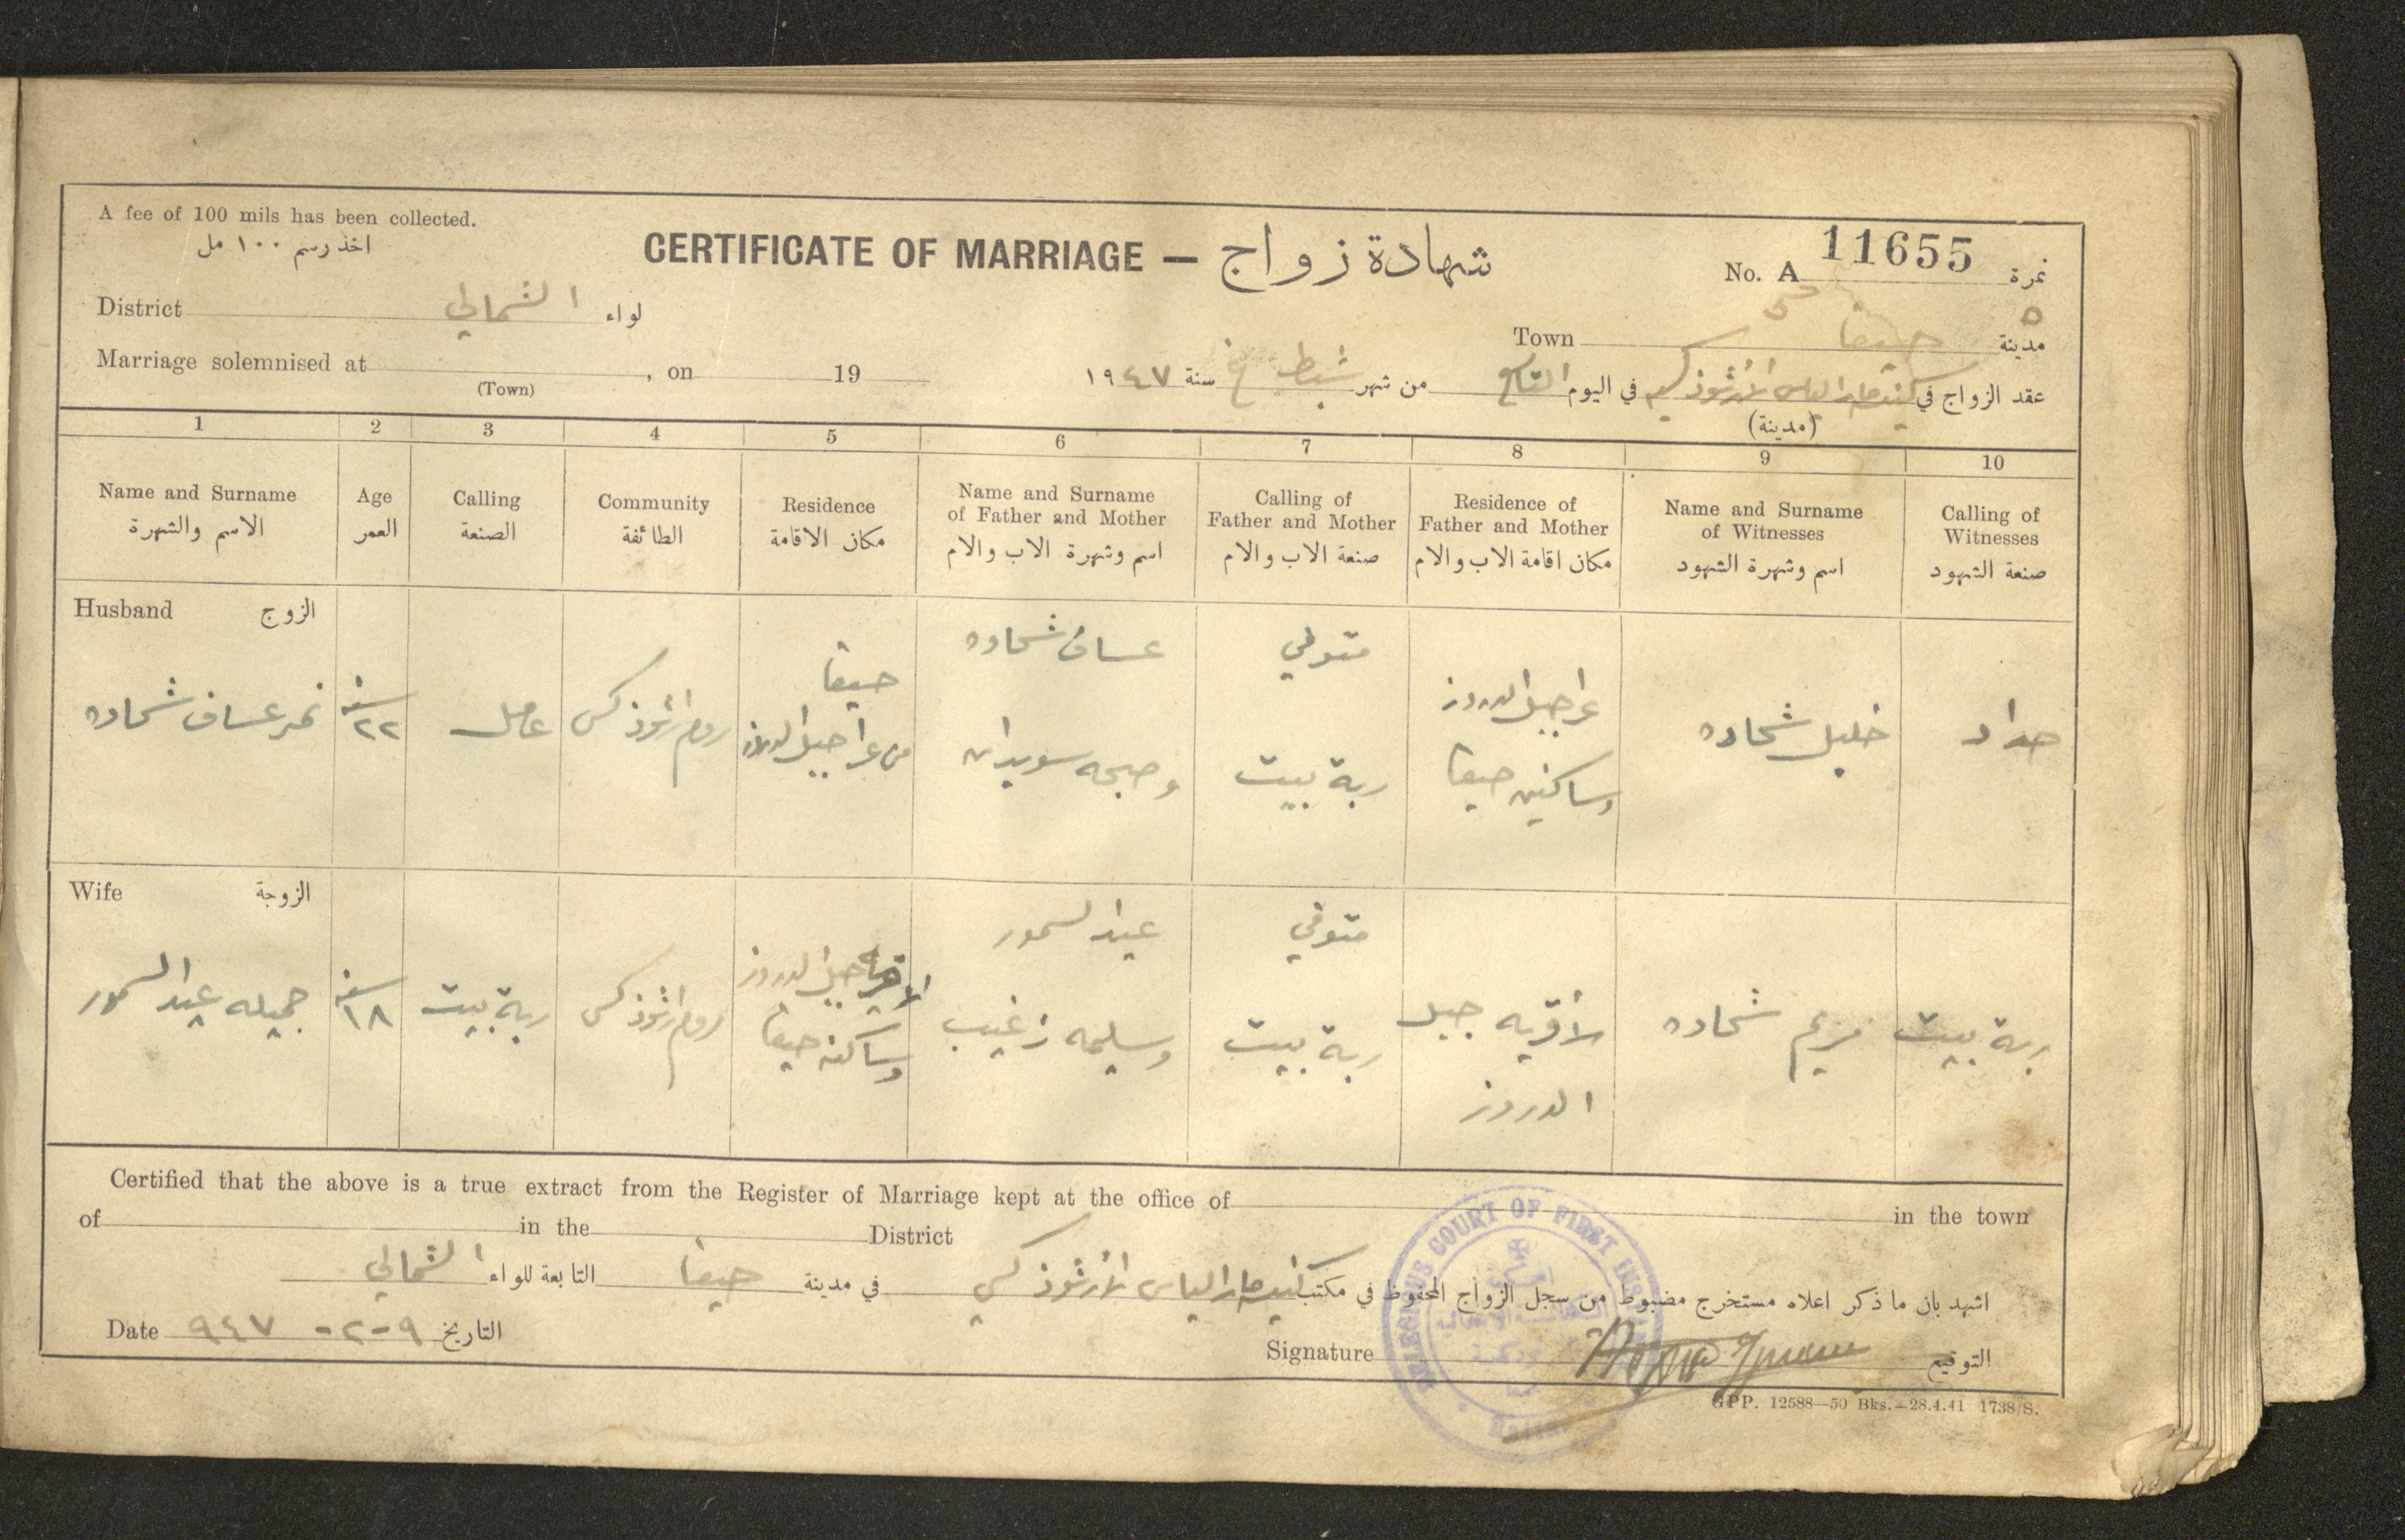 A fee of 100 mils has been collected.
اخذ رسم ١٠٠ مل
CERTIFICATE OF MARRIAGE — شهادة زواج
No. A 11655 نمرة
District الشمالي لواء
Town حيفا مدينة
٥
Marriage solemnised at , on 19
(Town)
عقد الزواج في كنيسة مار الياس الارثوذكسية في اليوم التاسع من شهر شباط سنة ١٩٤٧
(مدينة)
1 2 3 4 5 6 7 8 9 10
Name and Surname
الاسم والشهرة
Age
العمر
Calling
الصنعة
Community
الطائفة
Residence
مكان الاقامة
Name and Surname
of Father and Mother
اسم وشهرة الاب والام
Calling of
Father and Mother
صنعة الاب والام
Residence of
Father and Mother
مكان اقامة الاب والام
Name and Surname
of Witnesses
اسم وشهرة الشهود
Calling of
Witnesses
صنعة الشهود
Husband الزوج
نمر عساف شحاده
سنة
٢٢
عامل
روم ارثوذكس
حيفا
من عرا جبل الدروز
عساف شحاده
وصبحه سويدان
متوفي
ربة بيت
عرا جبل الدروز
وساكنين حيفا
خليل شحاده
حداد
Wife الزوجة
جميله عيد السمور
سنة
١٨
ربة بيت
روم ارثوذكس
جبل الدروز
وساكنه حيفا
عيد السمور
وسليمه زغيب
متوفي
ربة بيت
لأقريه جبل
الدروز
مريم شحاده
ربة بيت
Certified that the above is a true extract from the Register of Marriage kept at the office of in the town
of in the District
اشهد بان ما ذكر اعلاه مستخرج مضبوط من سجل الزواج المحفوظ في مكتب كنيسة مار الياس الأرثوذكسي في مدينة حيفا التابعة للواء الشمالي
Date ٩-٢-٩٤٧ التاريخ
Signature التوقيع
RELIGIOUS COURT OF FIRST INS
Haifa
GPP. 12588—50 Bks.—28.4.41 1738/S.